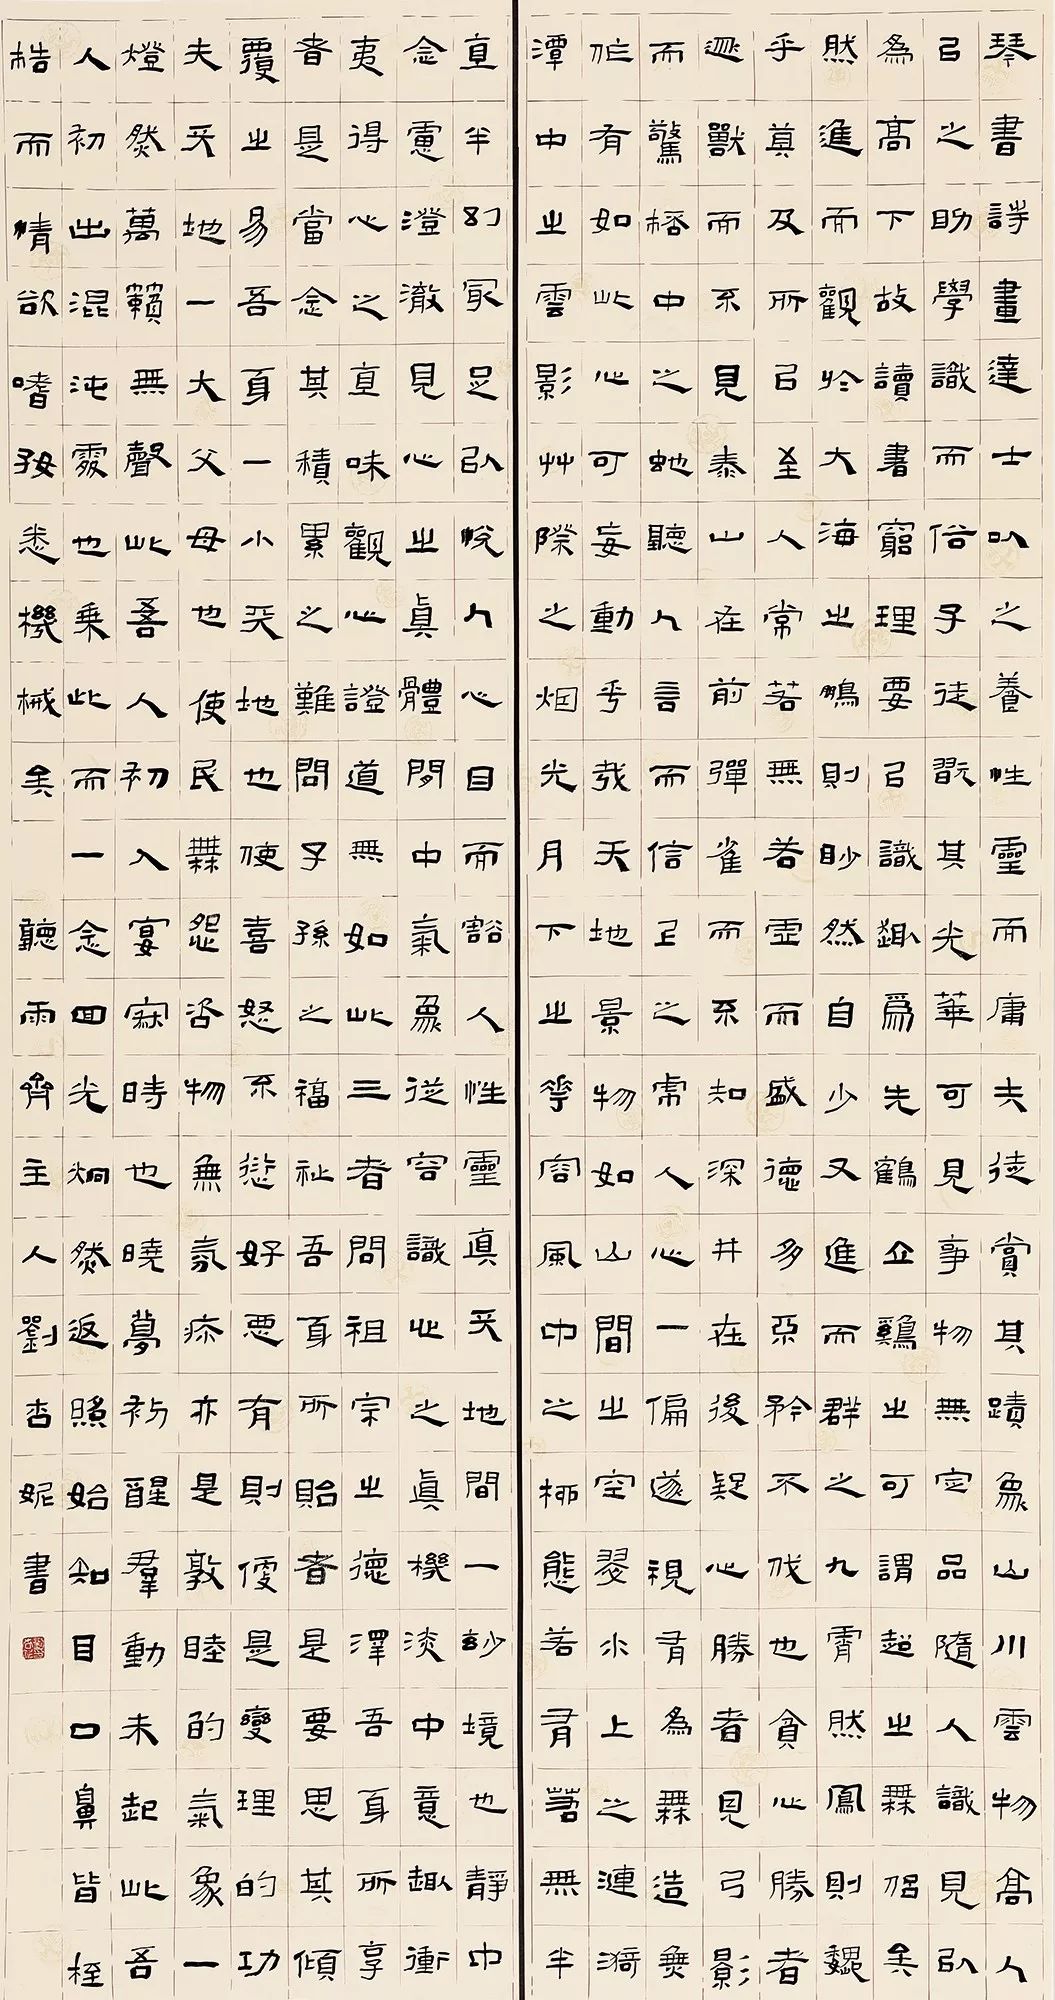 琴書詩畫達士以之養性靈而庸夫徒賞其蹟象山川雲物高人
㠯之助學識而俗子徒翫其光華可見事物無定品隨人識見以
為高下故讀書窮理要㠯識趣爲先鶴立鷄之可謂超之無侶矣
然進而觀於大海之鵬則眇然自少又進而群之九霄然鳳則巍
乎真及所㠯至人常若無若虛而盛德多亞矜不伐也貪心勝者
逐獸而不見泰山在前彈雀而不知深井在後疑心勝者見弓影
而驚桮中之虵聽人言而信市之虎人心一偏遂視有為無造無
作有如此心可妄動乎哉天地景物如山間之空翠水上之漣漪
潭中之雲影艸際之烟光月下之華容風中之柳態若有若無半
真半幻最足以悅人心目而豁人性靈真天地間一妙境也靜中
念慮澄澈見心之真體閑中氣象從容識此之真機淡中意趣衝
夷得心之真味觀心證道無如此三者問祖宗之德澤吾身所享
者是當念其積累之難問子孫之福祉吾身所貽者是要思其傾
覆之易吾身一小天地也使喜怒不愆好惡有則便是燮理的功
夫天地一大父母也使民無怨咨物無氛疹亦是敦睦的氣象一
燈熒然萬籟無聲此吾人初入宴寂時也曉夢初醒羣動未起此吾
人初出混沌處也乘此而一念回光炯然返照始知目口鼻皆桎
梏而情欲嗜好悉機械矣 聽雨齊主人劉杏妮書